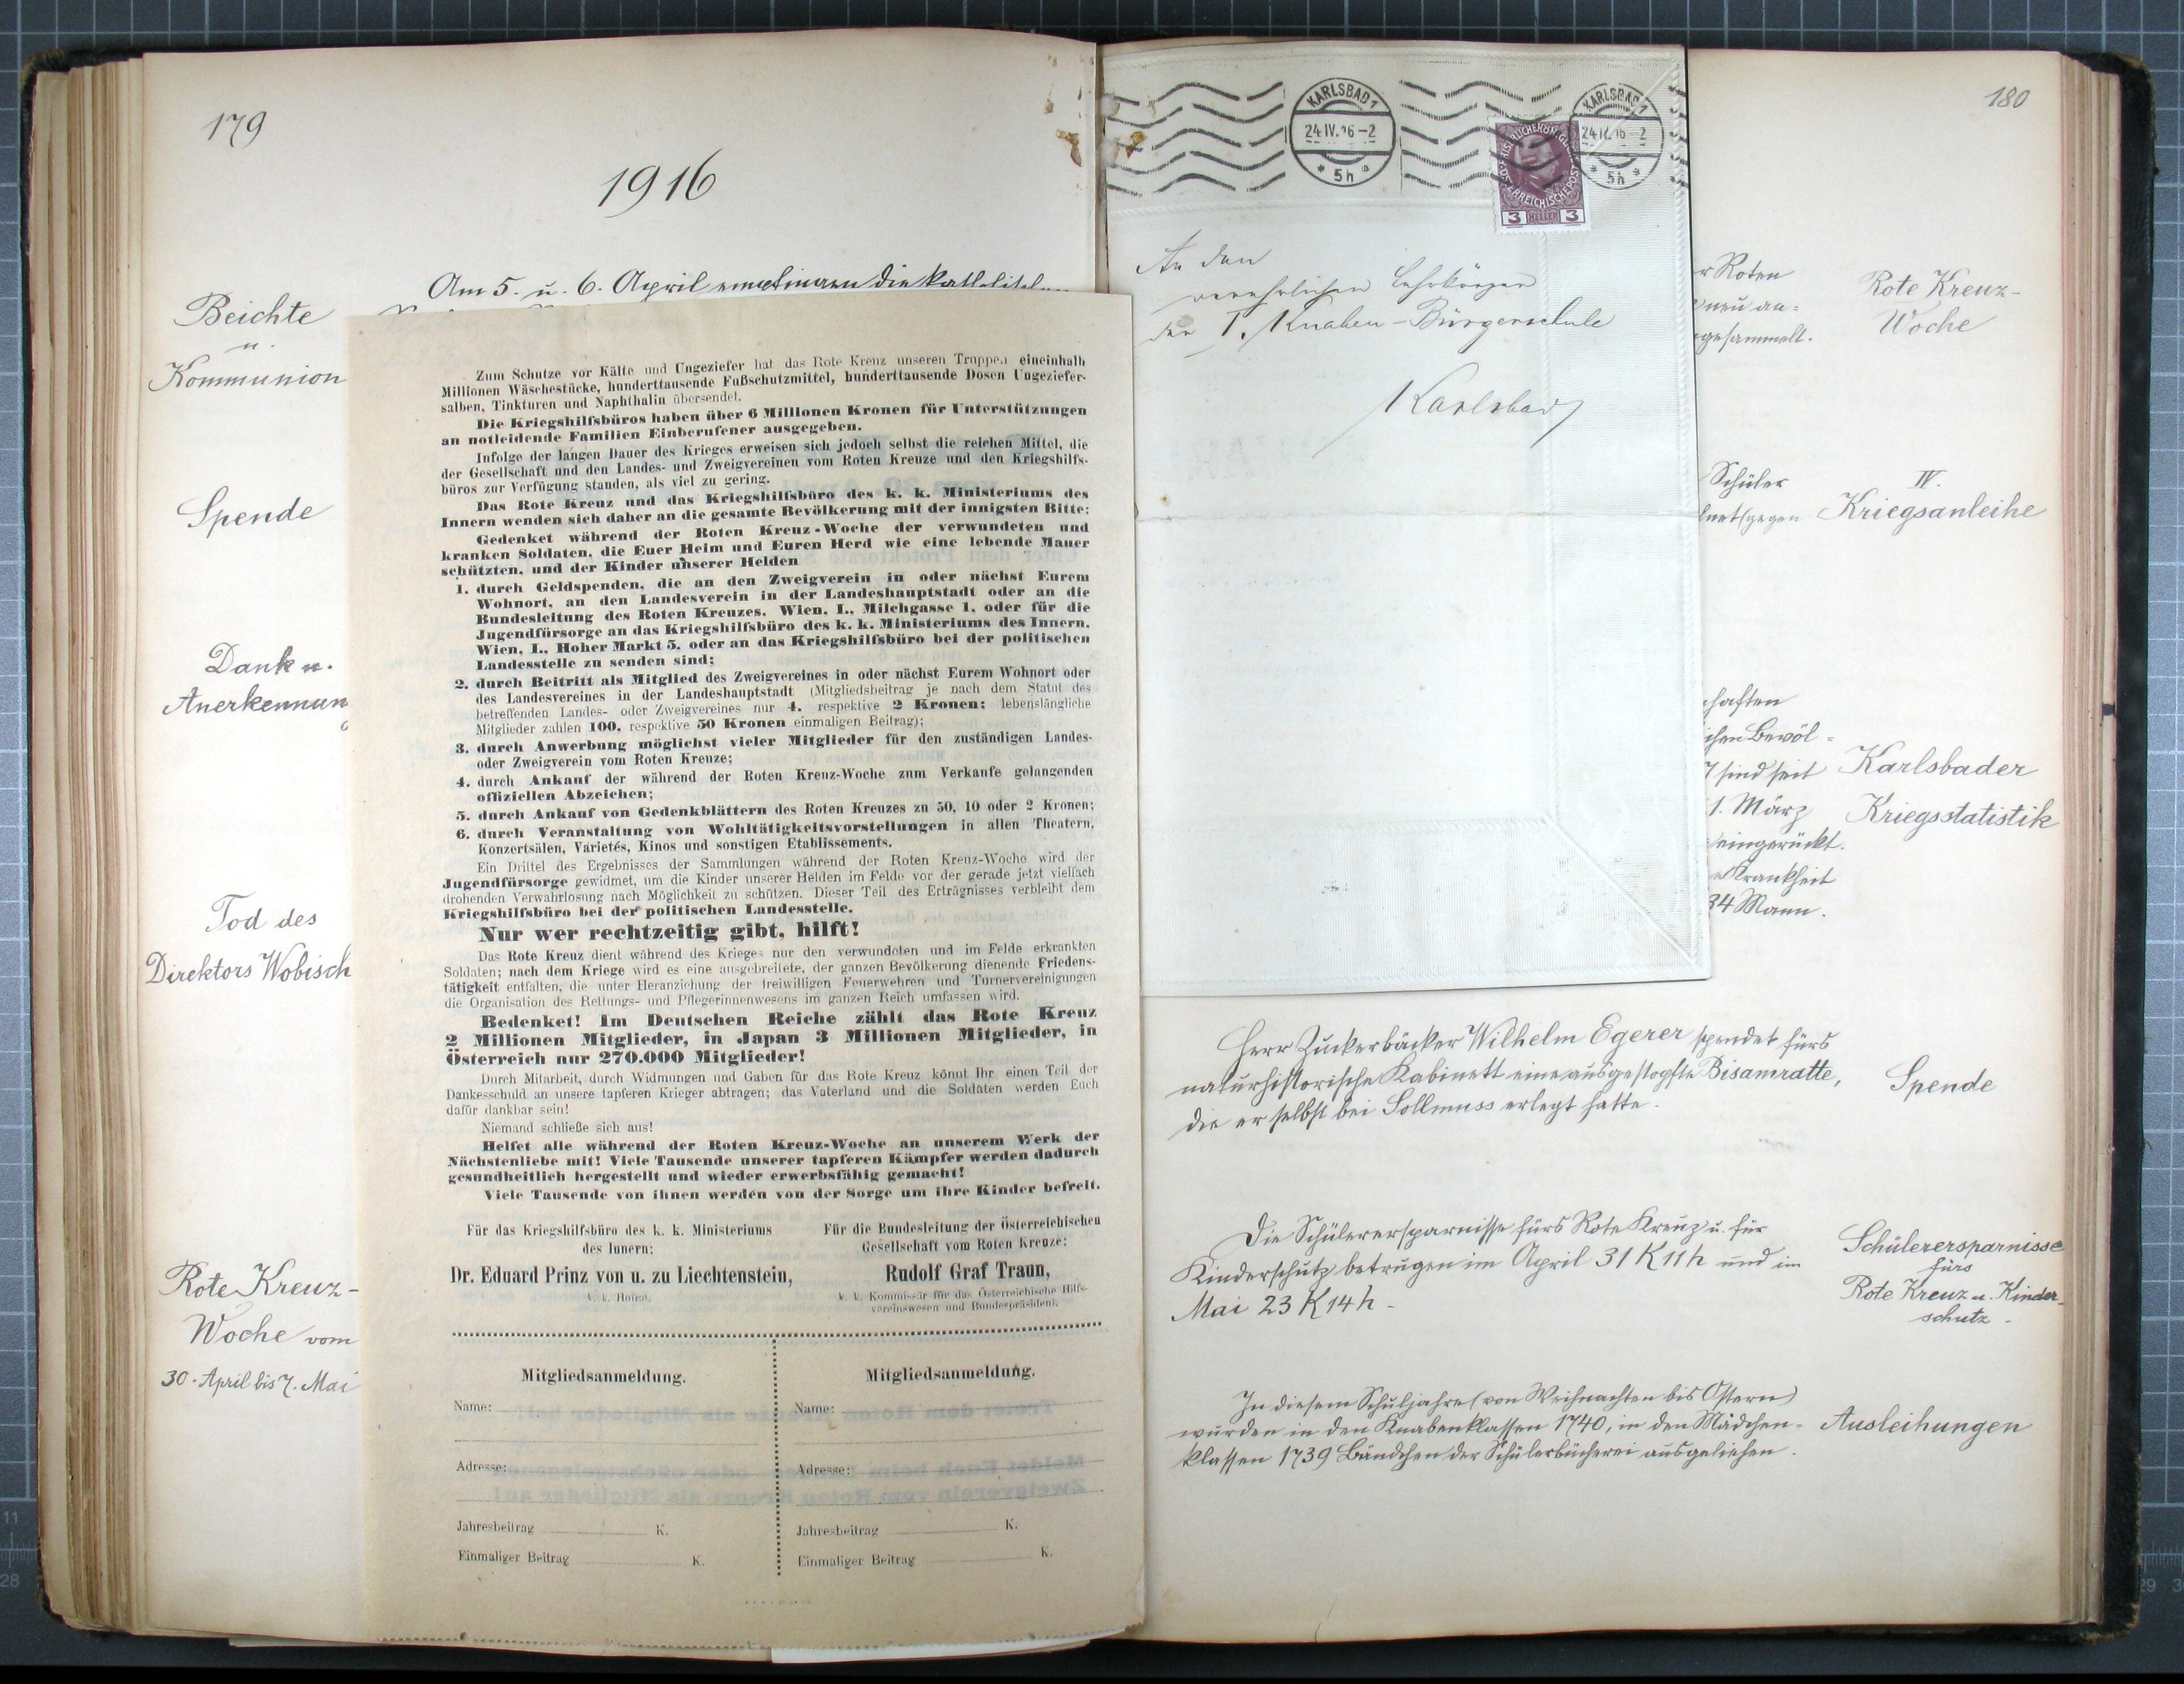 179
1916
Am 5. u. 6. April
Beichte
u.
Kommunion
Spende
Dank u.
Anerkennun
Tod des
Direktors Wobisch
Rote Kreuz-
Woche vom
30. April bis 7. Mai
Zum Schutze vor Kälte und Ungeziefer hat das Rote Kreuz unseren Truppen eineinhalb
Millionen Wäschestücke, hunderttausende Fußschutzmittel, hunderttausende Dosen Ungeziefer-
salben, Tinkturen und Naphthalin übersendet.
Die Kriegshilfsbüros haben über 6 Millionen Kronen für Unterstützungen
an notleidende Familien Einberufener ausgegeben.
Infolge der langen Dauer des Krieges erweisen sich jedoch selbst die reichen Mittel, die
der Gesellschaft und den Landes- und Zweigvereinen vom Roten Kreuze und den Kriegshilfs-
büros zur Verfügung standen, als viel zu gering.
Das Rote Kreuz und das Kriegshilfsbüro des k. k. Ministeriums des
Innern wenden sich daher an die gesamte Bevölkerung mit der innigsten Bitte:
Gedenket während der Roten Kreuz-Woche der verwundeten und
kranken Soldaten, die Euer Heim und Euren Herd wie eine lebende Mauer
schützten, und der Kinder unserer Helden
1. durch Geldspenden, die an den Zweigverein in oder nächst Eurem
Wohnort, an den Landesverein in der Landeshauptstadt oder an die
Bundesleitung des Roten Kreuzes, Wien, I., Milchgasse 1, oder für die
Jugendfürsorge an das Kriegshilfsbüro des k. k. Ministeriums des Innern,
Wien, I., Hoher Markt 5, oder an das Kriegshilfsbüro bei der politischen
Landesstelle zu senden sind;
2. durch Beitritt als Mitglied des Zweigvereines in oder nächst Eurem Wohnort oder
des Landesvereines in der Landeshauptstadt (Mitgliedsbeitrag je nach dem Statut des
betreffenden Landes- oder Zweigvereines nur 4, respektive 2 Kronen; lebenslängliche
Mitglieder zahlen 100, respektive 50 Kronen einmaligen Beitrag);
3. durch Anwerbung möglichst vieler Mitglieder für den zuständigen Landes-
oder Zweigverein vom Roten Kreuze;
4. durch Ankauf der während der Roten Kreuz-Woche zum Verkaufe gelangenden
offiziellen Abzeichen;
5. durch Ankauf von Gedenkblättern des Roten Kreuzes zu 50, 10 oder 2 Kronen;
6. durch Veranstaltung von Wohltätigkeitsvorstellungen in allen Theatern,
Konzertsälen, Varietés, Kinos und sonstigen Etablissements.
Ein Drittel des Ergebnisses der Sammlungen während der Roten Kreuz-Woche wird der
Jugendfürsorge gewidmet, um die Kinder unserer Helden im Felde vor der gerade jetzt vielfach
drohenden Verwahrlosung nach Möglichkeit zu schützen. Dieser Teil des Erträgnisses verbleibt dem
Kriegshilfsbüro bei der politischen Landesstelle.
Nur wer rechtzeitig gibt, hilft!
Das Rote Kreuz dient während des Krieges nur den verwundeten und im Felde erkrankten
Soldaten; nach dem Kriege wird es eine ausgebreitete, der ganzen Bevölkerung dienende Friedens-
tätigkeit entfalten, die unter Heranziehung der freiwilligen Feuerwehren und Turnervereinigungen
die Organisation des Rettungs- und Pflegerinnenwesens im ganzen Reich umfassen wird.
Bedenket! Im Deutschen Reiche zählt das Rote Kreuz
2 Millionen Mitglieder, in Japan 3 Millionen Mitglieder, in
Österreich nur 270.000 Mitglieder!
Durch Mitarbeit, durch Widmungen und Gaben für das Rote Kreuz könnt Ihr einen Teil der
Dankesschuld an unsere tapferen Krieger abtragen; das Vaterland und die Soldaten werden Euch
dafür dankbar sein!
Niemand schließe sich aus!
Helfet alle während der Roten Kreuz-Woche an unserem Werk der
Nächstenliebe mit! Viele Tausende unserer tapferen Kämpfer werden dadurch
gesundheitlich hergestellt und wieder erwerbsfähig gemacht!
Viele Tausende von ihnen werden von der Sorge um ihre Kinder befreit.
Für das Kriegshilfsbüro des k. k. Ministeriums
des Innern:
Dr. Eduard Prinz von u. zu Liechtenstein,
k. k. Hofrat.
Für die Bundesleitung der Österreichischen
Gesellschaft vom Roten Kreuze:
Rudolf Graf Traun,
k. k. Kommissär für das Österreichische Hilfs-
vereinswesen und Bundespräsident.
Mitgliedsanmeldung.
Name:
Adresse:
Jahresbeitrag K.
Einmaliger Beitrag K.
Mitgliedsanmeldung.
Name:
Adresse:
Jahresbeitrag K.
Einmaliger Beitrag K.
KARLSBAD 1
24 IV. 16 – 2
* 5h *
KARLSBAD 1
24 IV. 16 2
* 5h *
3 HELLER 3
An den
verehrlichen Lehrkörper
der I. Knaben-Bürgerschule
Karlsbad
180
r Roten
neu an=
gesammelt.
Rote Kreuz-
Woche
Schüler
gegen
IV.
Kriegsanleihe
haften
chen Bevöl=
sind seit
1. März
eingerückt.
Krankheit
34 Mann.
Karlsbader
Kriegsstatistik
Herr Zuckerbäcker Wilhelm Egerer spendet fürs
naturhistorische Kabinett eine ausgestopfte Bisamratte,
die er selbst bei Sollmuss erlegt hatte.
Spende
Die Schülerersparnisse fürs Rote Kreuz u. für
Kinderschutz betrugen im April 31 K 11 h und im
Mai 23 K 14 h -
Schülerersparnisse
fürs
Rote Kreuz u. Kinder-
schutz -
In diesem Schuljahre (von Weihnachten bis Ostern)
wurden in den Knabenklassen 1740, in den Mädchen-
klassen 1739 Bändchen der Schülerbücherei ausgeliehen.
Ausleihungen